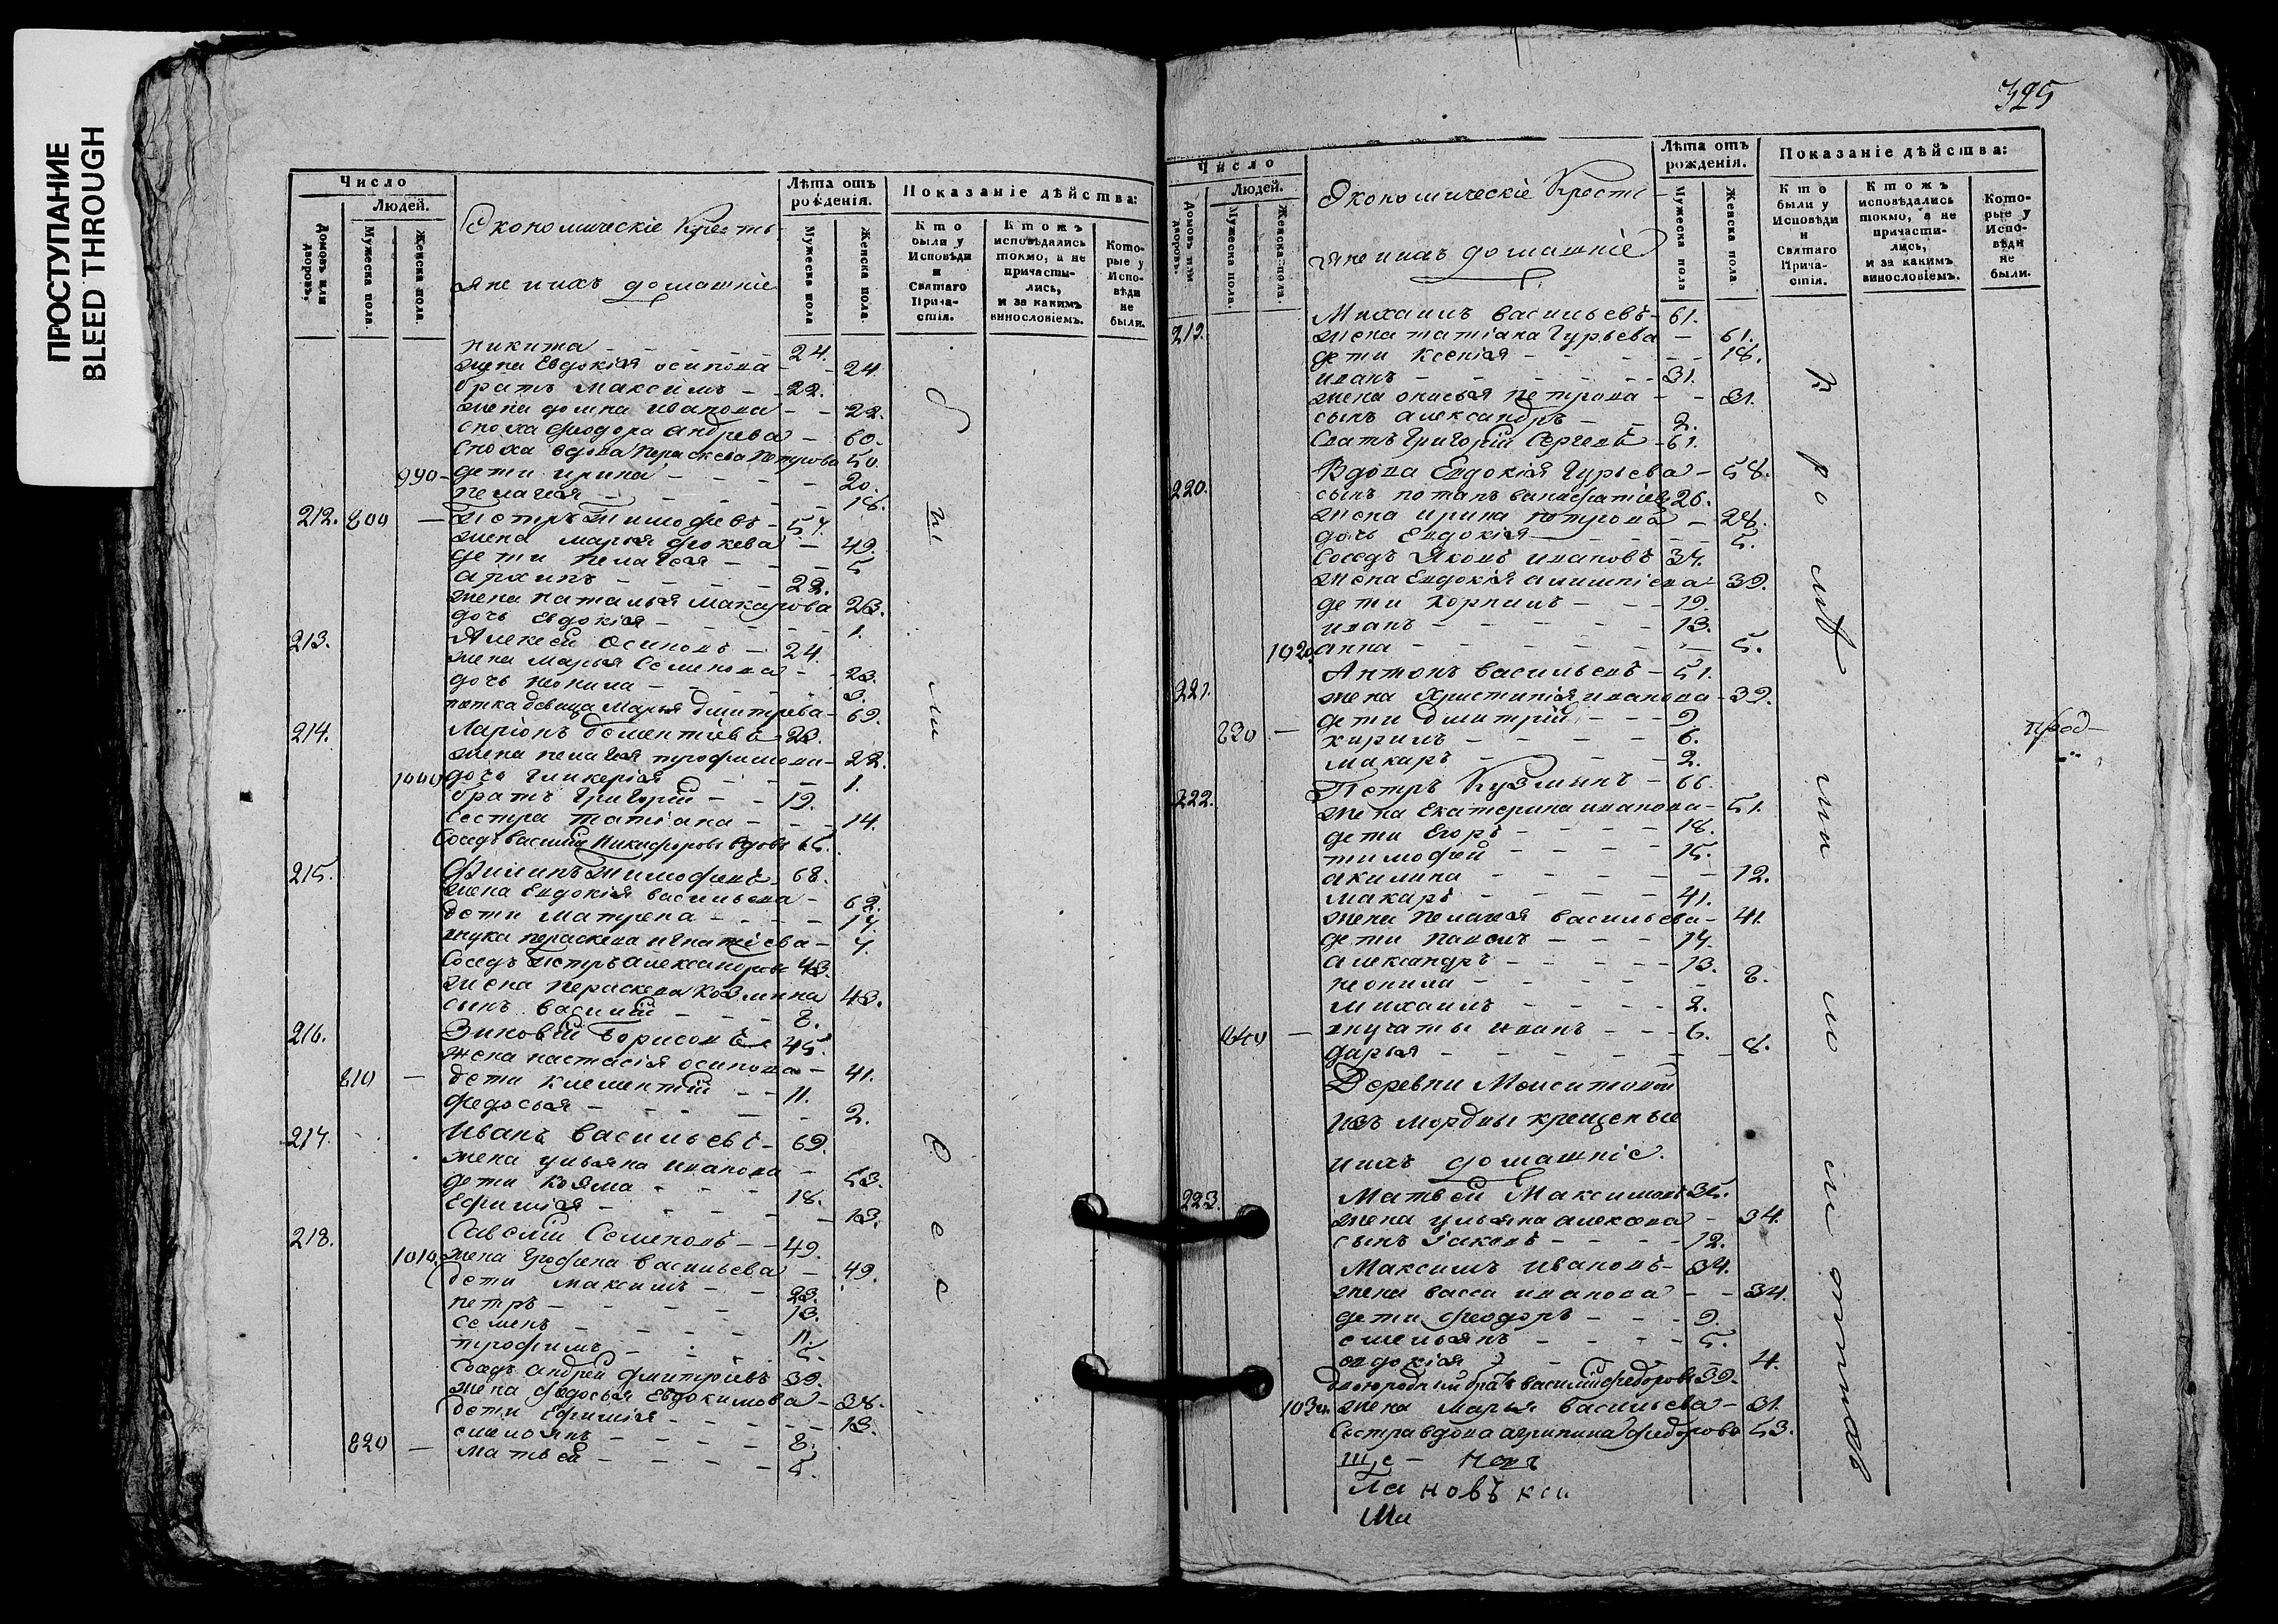 ПРОСТУПАНИЕ
BLEED THROUGH
Число
Людей.
Домовъ или дворовъ.
Мужеска пола.
Женска пола.
Экономическіе Кресть-
яне ихъ домашніе
Лѣта отъ рожденія.
Мужеска пола
Женска пола
Показаніе дѣйства:
Кто были у Исповѣди и Святаго Прича- стія.
Ктожъ исповѣдались токмо, а не причасти- лись, и за какимъ винословіемъ.
Кото- рые у Испо- вѣди не были.
никита - 24.
жена Евдокія осипова - 24
братъ Максимъ - 22.
жена домна иванова - 22.
сноха феодора андрева - 60.
сноха вдова Параскева Петрова 50.
990 - дети ирина - 20.
пелагея - 18.
212. 800 - Петръ тимофевъ - 57.
жена марья фокева - 49.
дети пелагея - 5
архипъ - 22.
жена наталья макарова 23.
дочь Евдокія - 1.
213. Алексей Осиповъ - 24.
жена марья Семенова - 23.
дочь неонила - 3.
тетка девица Марья дмитрева - 69.
214. Ларіонъ дементіевъ 23.
жена пелагея трофимова - 22.
1000 дочь гликерія - 1.
братъ Григорій - 19.
сестра татіана - 14.
Соседъ василій Никифоровъ вдовъ 65.
215. Филипъ тимофеевъ - 68.
жена Евдокія васильева - 62.
дети матрена - 17.
внука параскева игнатіева - 7.
Соседъ петръ александровъ 43.
жена параскева козмина 43.
сынъ василій - 8.
216. Зиновій Борисовъ 45.
жена настасія осипова - 41.
810 - дети климентій - 11.
федосья - 2.
217. Иванъ васильевъ - 69.
жена ульяна иванова - 53.
дети козма - 18.
Ефимія - 13.
218. Савелій Семеновъ - 49.
1010. жена Графена васильева - 49.
дети максимъ - 23.
петръ - 13.
семенъ - 11.
трофимъ - 5.
Соседъ андрей дмитріевъ 39.
жена федосья Евдокимова - 38.
дети Ефимія - 13.
емельянъ - 8.
820 - матвей - 5.
б ы ли в с е
395
Число
Людей.
Домовъ или дворовъ.
Мужеска пола.
Женска пола.
Экономическіе Кресть-
яне ихъ домашніе
Лѣта отъ рожденія.
Мужеска пола
Женска пола
Показаніе дѣйства:
Кто были у Исповѣди и Святаго Прича- стія.
Ктожъ исповѣдались токмо, а не причасти- лись, и за какимъ винословіемъ.
Кото- рые у Испо- вѣди не были.
219. Михаилъ васильевъ - 61.
жена татіана Гурьева - 61.
дети Ксенія - 18.
иванъ - 31.
жена онисья петрова - 31.
сынъ александръ - 2.
Сватъ Григорій Сергеевъ - 61.
220. Вдова Евдокія Гурьева - 58.
сынъ потапъ 26.
жена ирина петрова - 28.
дочь Евдокія - 5.
Соседъ Яковъ ивановъ 37.
жена Евдокія 39.
дети Корнилъ - 19.
иванъ - 13.
1020. анна - 5.
221. Антонъ васильевъ - 51.
жена Христинія иванова - 39.
дети дмитрій - 9.
830 - кирилъ - 6.
макаръ - 2.
222. Петръ Кузминъ - 66.
жена Екатерина иванова - 51.
дети Егоръ - 18.
тимофей - 15.
акилина - 12.
макаръ - 41.
жена пелагея васильева - 41.
дети павелъ - 14.
александръ - 13.
неонила - 8.
михаилъ - 2.
840 - внучаты иванъ - 6.
дарья - 8.
Деревни
изъ мордвы крещеные
ихъ домашніе.
223. Матвей Максимовъ 35.
жена ульяна алексева - 34.
сынъ Іаковъ - 12.
Максимъ ивановъ - 34.
жена васса иванова - 34.
дети феодоръ - 9.
емельянъ - 5.
евдокія - 4.
двоюродный братъ василій федоровъ 39.
1030. жена марья васильева - 31.
Сестра вдова агрипина федорова 53.